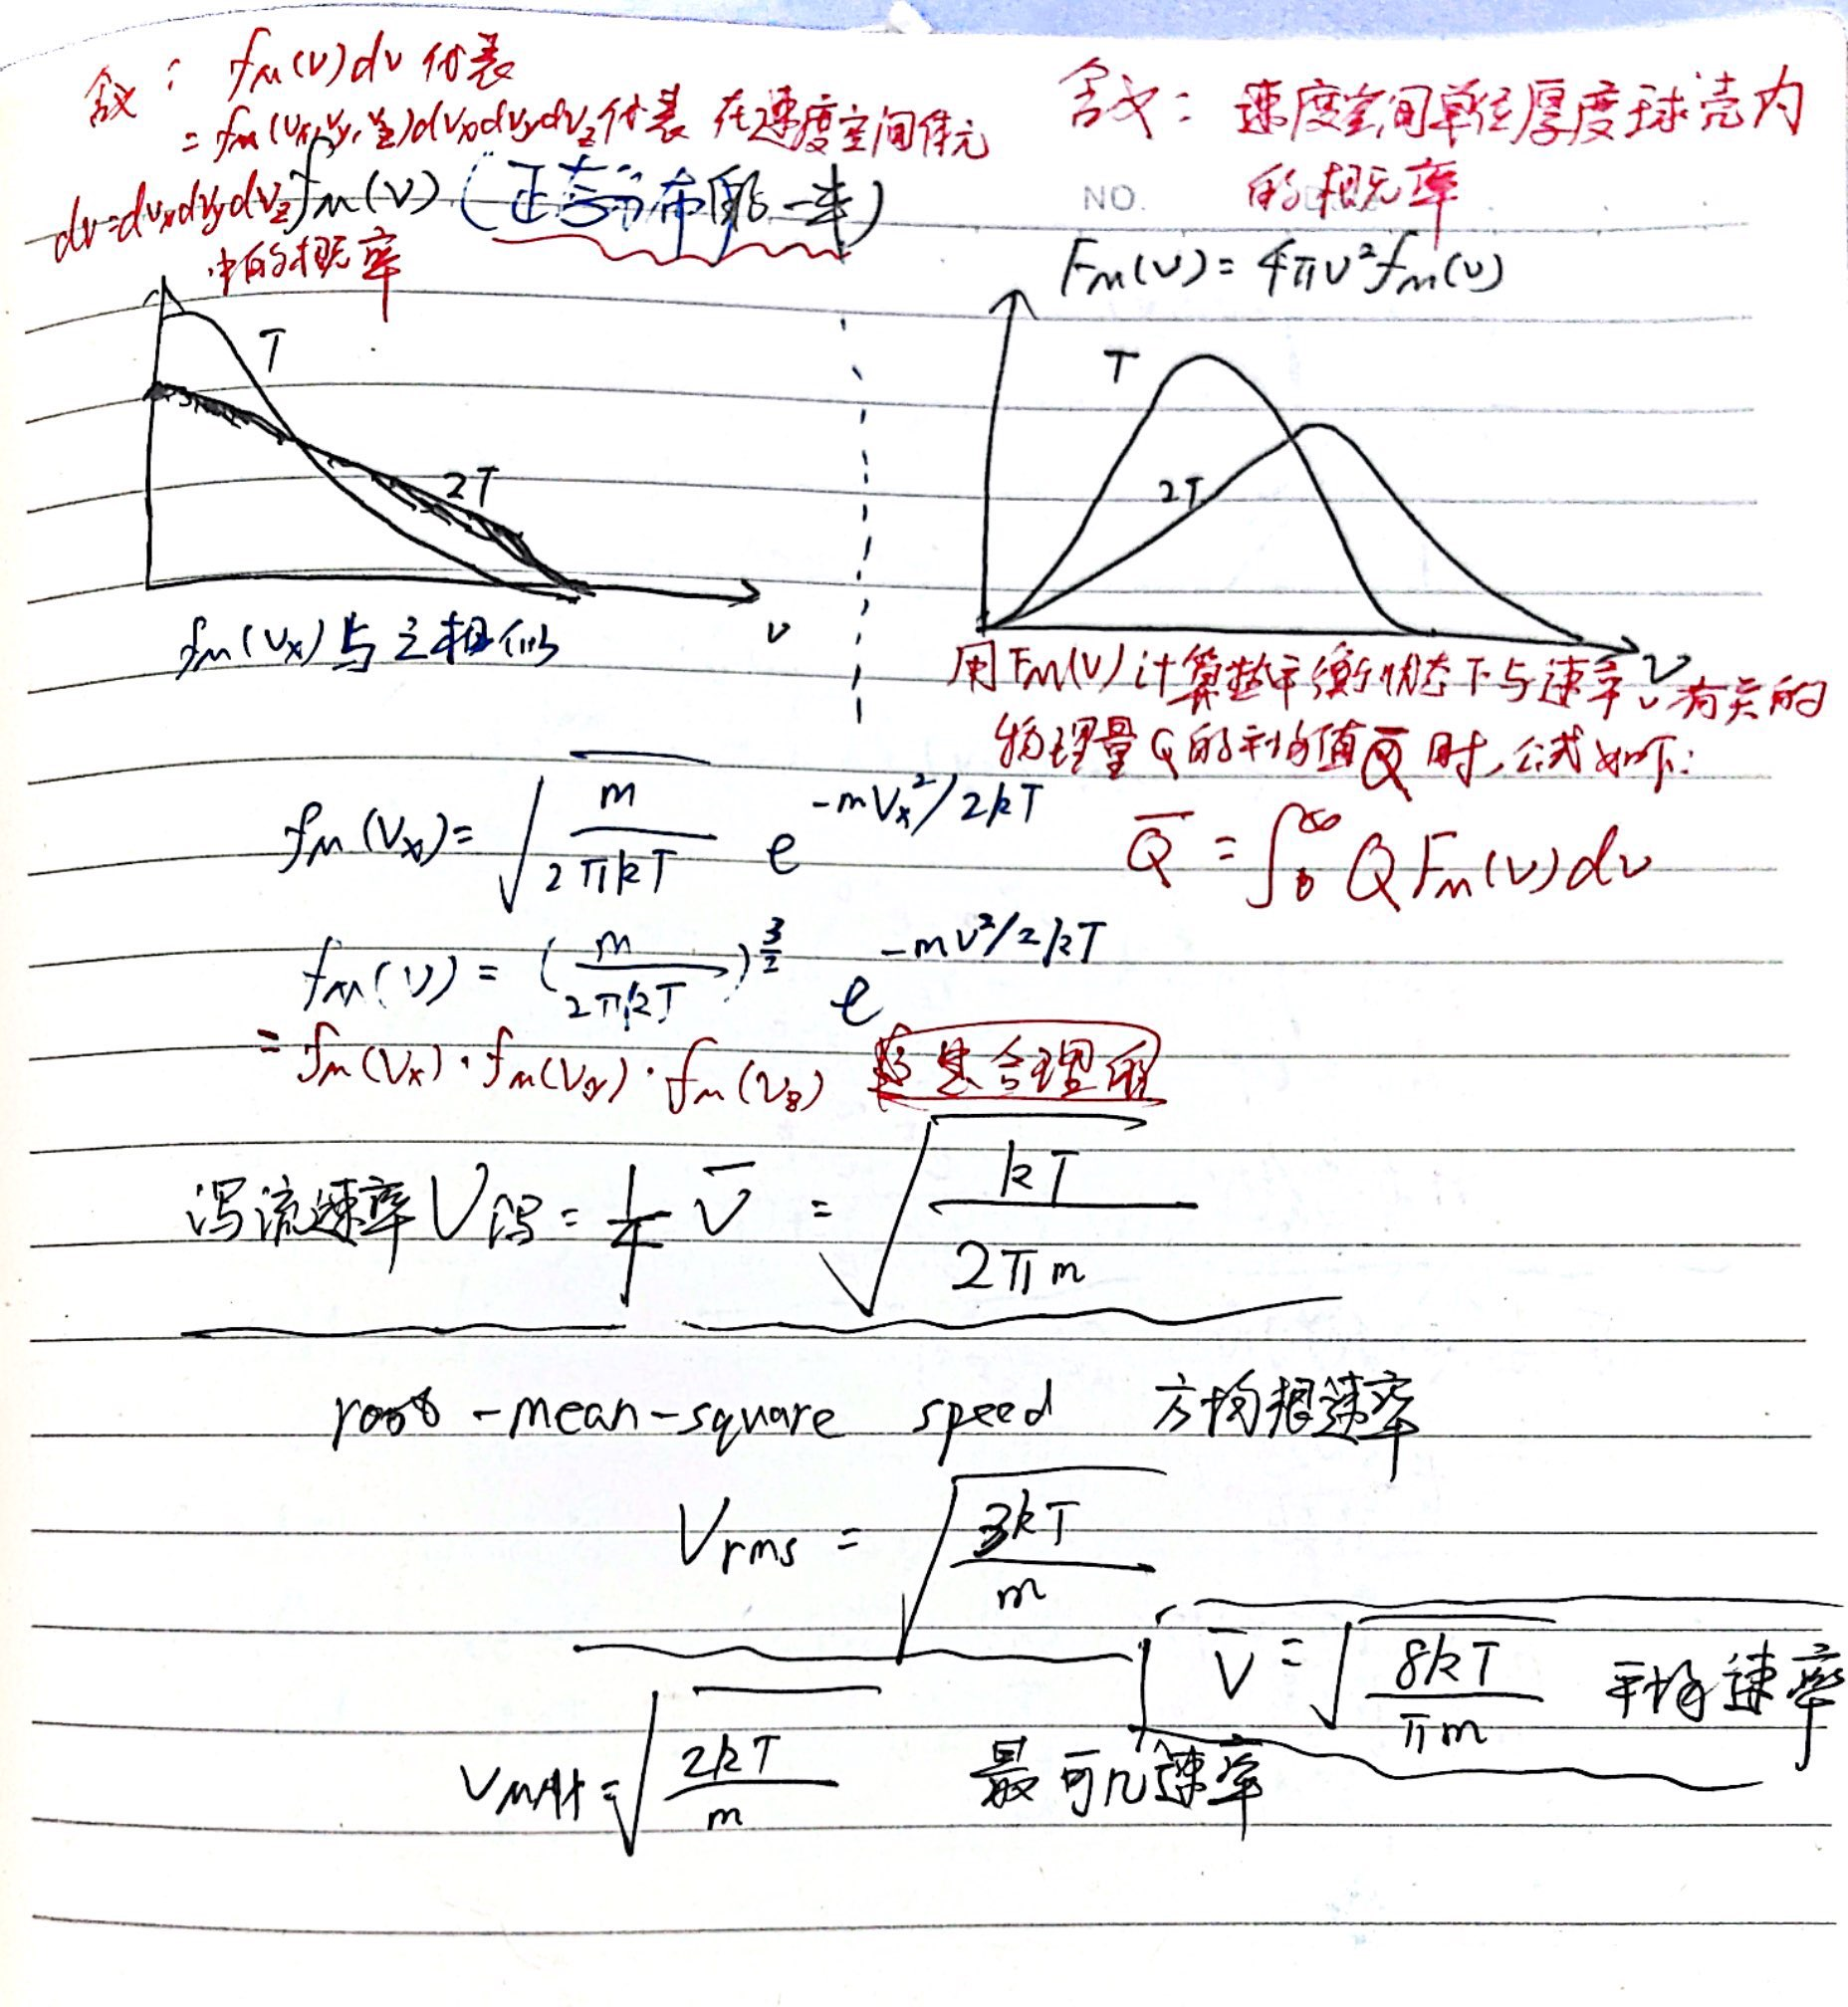 含义：fM(v)dv 代表
= fM(vx,vy,vz)dvxdvydvz代表 在速度空间体元
dv=dvxdvydvz
中的概率
fM(v) (正态分布的一半)
含义：速度空间单位厚度球壳内
的概率
NO.
FM(v) = 4πv²fM(v)
T
2T
v
fM(vx) 与之相似
T
2T
v
用FM(v)计算热平衡状态下与速率v有关的
物理量Q的平均值Q̄时,公式如下:
Q̄ = ∫₀^∞ Q FM(v) dv
fM(vx) = √(m/2πkT) e^(-mvx²/2kT)
fM(v) = (m/2πkT)^(3/2) e^(-mv²/2kT)
= fM(vx)·fM(vy)·fM(vz) 是合理的
泻流速率 V泻 = 1/4 v̄ = √(kT/2πm)
root-mean-square speed 方均根速率
Vrms = √(3kT/m)
v̄ = √(8kT/πm) 平均速率
= √(2kT/m) 最可几速率